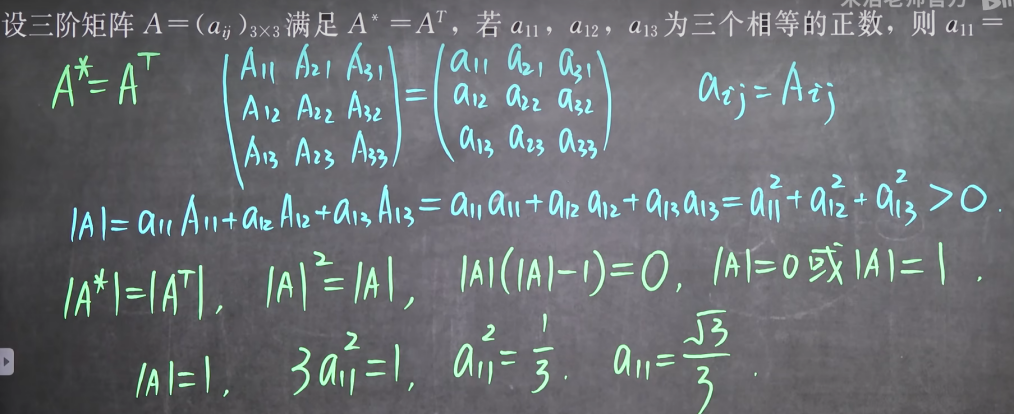 设三阶矩阵 A=(aᵢⱼ)₃ₓ₃ 满足 A*=Aᵀ，若 a₁₁，a₁₂，a₁₃ 为三个相等的正数，则 a₁₁=
A*=Aᵀ (A₁₁ A₂₁ A₃₁ / A₁₂ A₂₂ A₃₂ / A₁₃ A₂₃ A₃₃) = (a₁₁ a₂₁ a₃₁ / a₁₂ a₂₂ a₃₂ / a₁₃ a₂₃ a₃₃) aᵢⱼ=Aᵢⱼ
|A|=a₁₁A₁₁+a₁₂A₁₂+a₁₃A₁₃=a₁₁a₁₁+a₁₂a₁₂+a₁₃a₁₃=a₁₁²+a₁₂²+a₁₃²>0.
|A*|=|Aᵀ|, |A|²=|A|, |A|(|A|-1)=0, |A|=0或|A|=1.
|A|=1, 3a₁₁²=1, a₁₁²=1/3. a₁₁=√3/3.